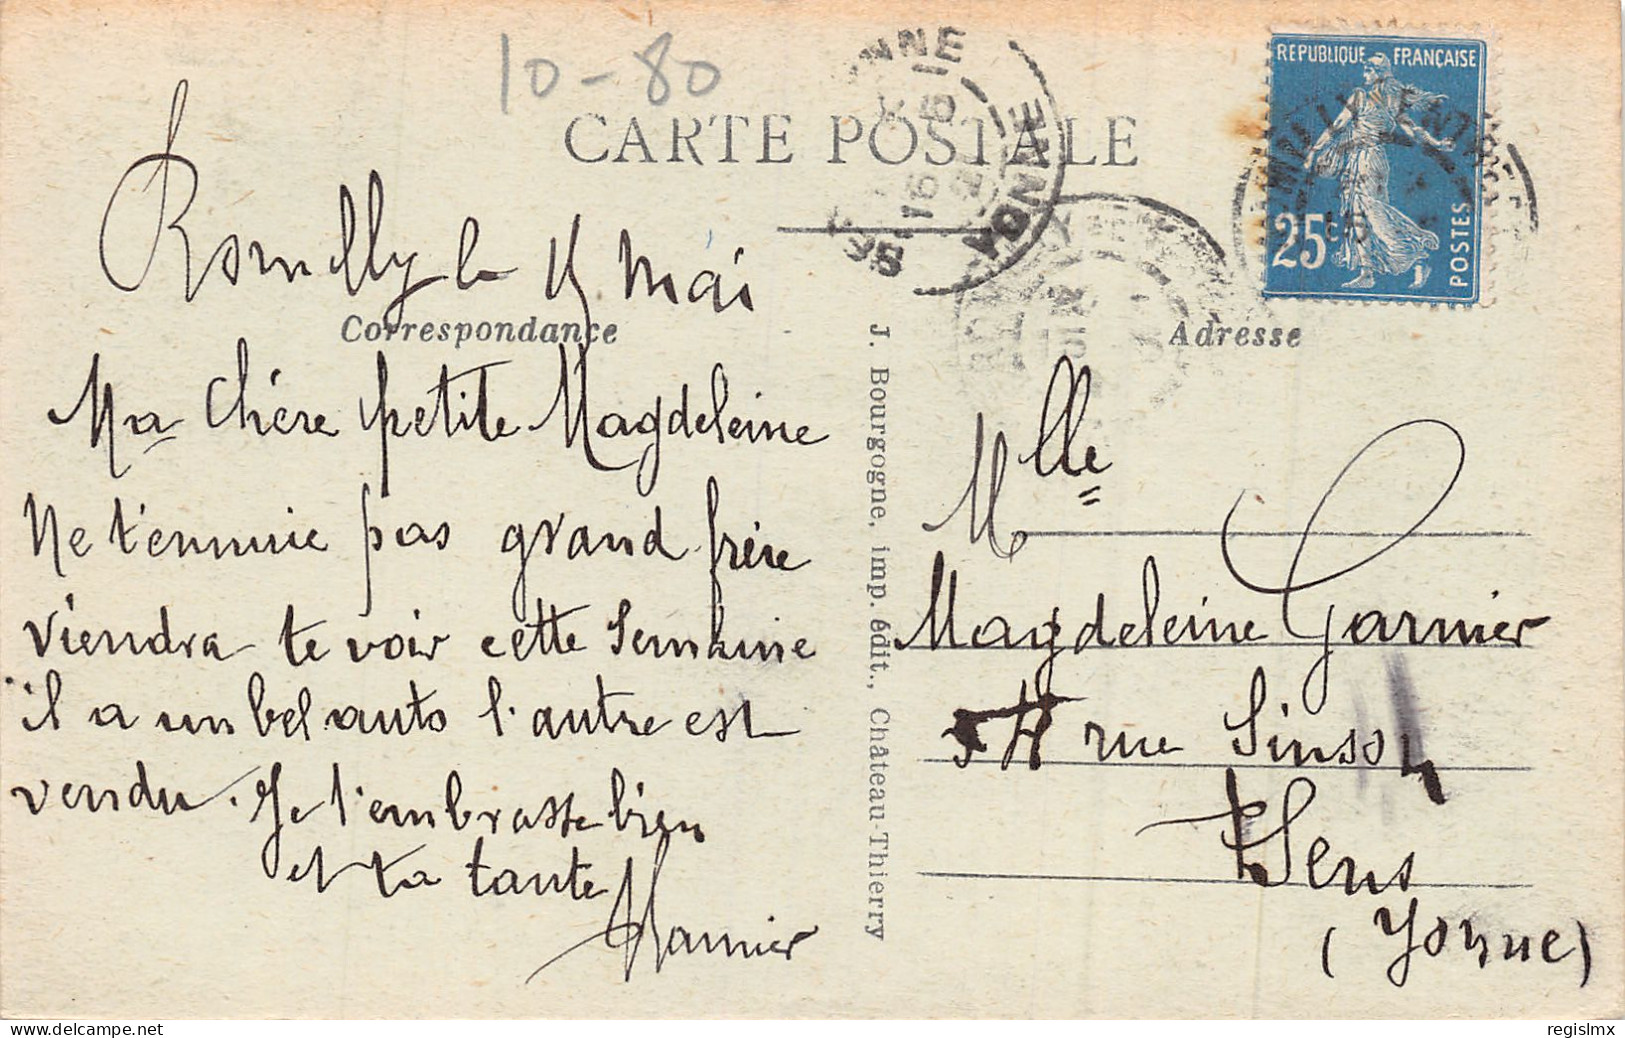 10-80
CARTE POSTALE
REPUBLIQUE FRANÇAISE
25c
POSTES
YONNE
Romilly le 15 Mai
Correspondance
Ma Chère petite Magdeleine
Ne t'ennuie pas grand frère
viendra te voir cette Semaine
il a un bel auto l'autre est
vendu. Je t'embrasse bien
et ta tante
J. Bourgogne, imp. édit., Château-Thierry
Adresse
Mlle
Magdeleine Garnier
rue
Sens
(Yonne)
www.delcampe.net
regislmx